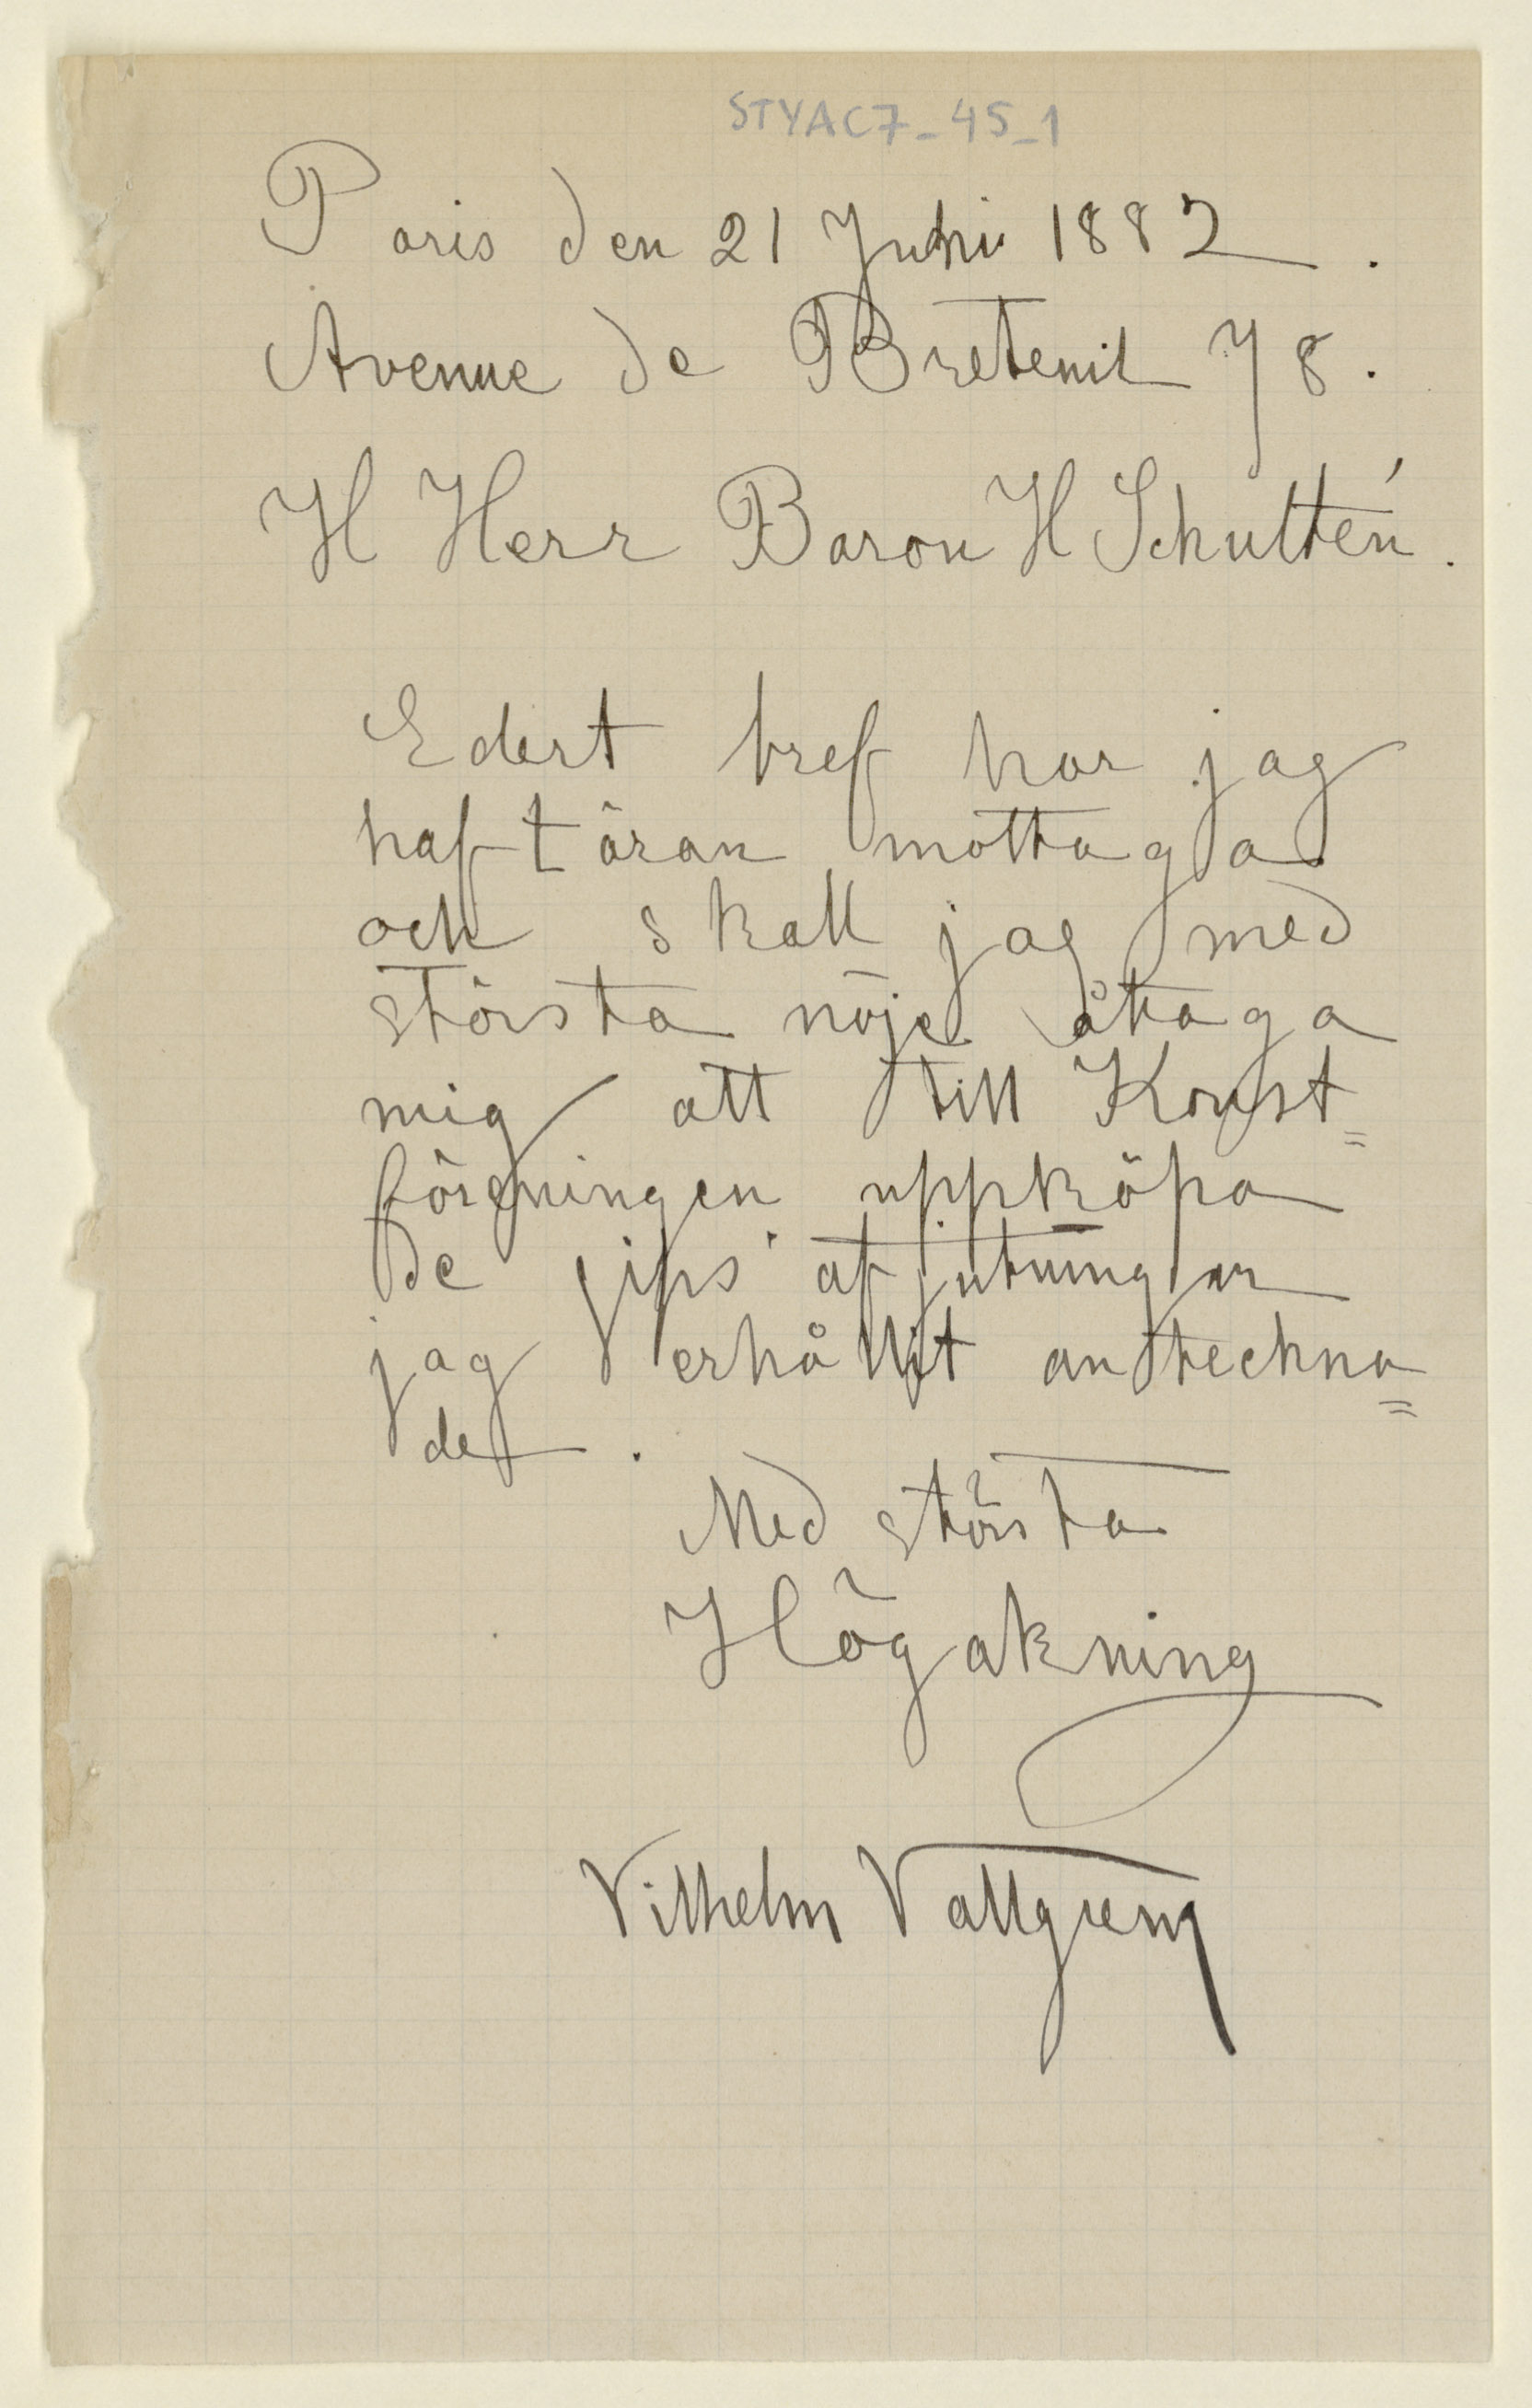 STYAC7_45_1
Paris den 21 Juni 1882.
Avenue de Breteuil 78.
H Herr Baron H Schultén.
Edert bref har jag
haft äran mottaga
och skall jag med
största nöje åttaga
mig att till Konst=
föreningen uppköpa
de gips afjutningar
jag erhållit antechna=
de.
Med största
Högakning
Vilhelm Vallgren